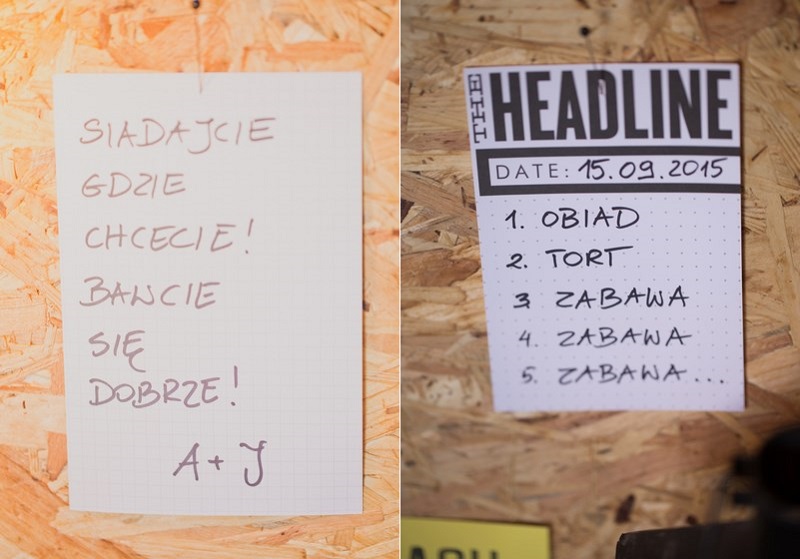 SIADAJCIE
GDZIE
CHCECIE!
BAWCIE
SIĘ
DOBRZE!
A + J
THE
HEADLINE
DATE: 15.09.2015
1. OBIAD
2. TORT
3. ZABAWA
4. ZABAWA
5. ZABAWA...